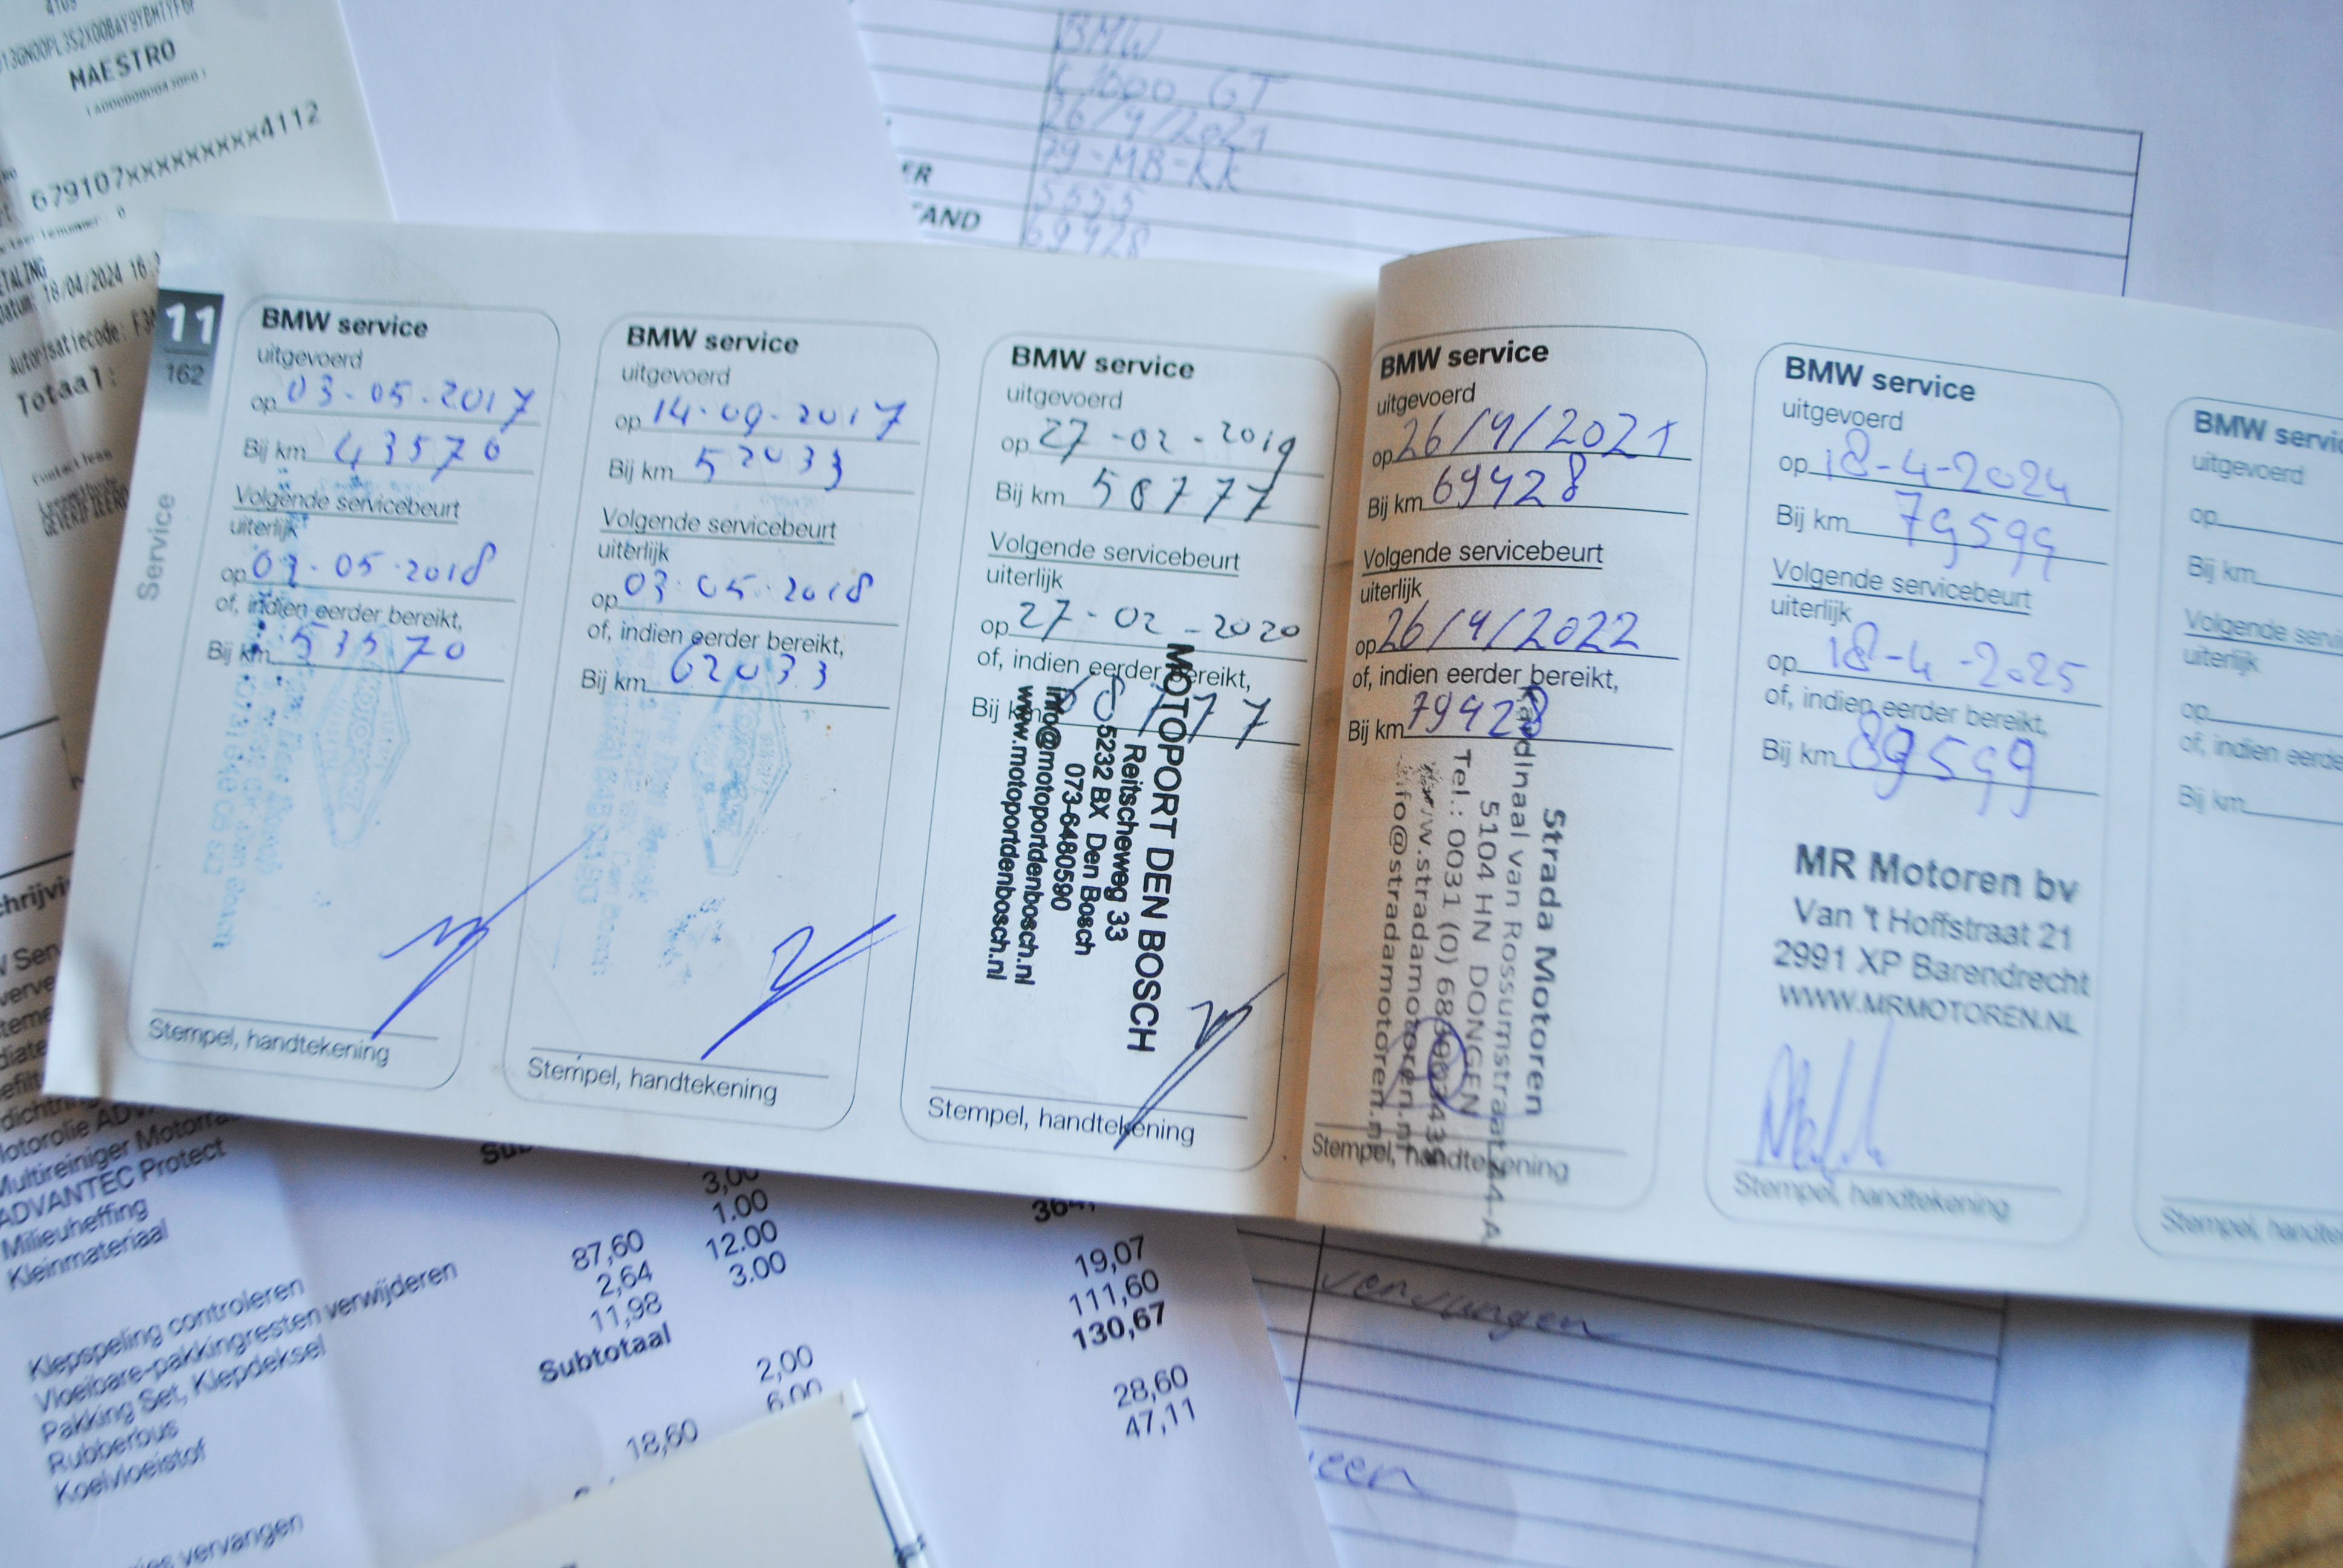 MAESTRO
679107xxxxxxxxx4112
18/04/2024 16:
Autorisatiecode:
Totaal:
BMW
K 1600 GT
26/4/2021
79-MB-KK
5555
69428
11
162
Service
BMW service
uitgevoerd
op 03-05-2017
Bij km 43576
Volgende servicebeurt
uiterlijk
op 03-05-2018
of, indien eerder bereikt,
Bij km 53570
Stempel, handtekening
BMW service
uitgevoerd
op 14-09-2017
Bij km 52033
Volgende servicebeurt
uiterlijk
op 03-05-2018
of, indien eerder bereikt,
Bij km 62033
Stempel, handtekening
BMW service
uitgevoerd
op 27-02-2019
Bij km 58777
Volgende servicebeurt
uiterlijk
op 27-02-2020
of, indien eerder bereikt,
Bij km 68777
MOTOPORT DEN BOSCH
Reitscheweg 33
5232 BX Den Bosch
073-6480590
info@motoportdenbosch.nl
www.motoportdenbosch.nl
Stempel, handtekening
BMW service
uitgevoerd
op 26/4/2021
Bij km 69428
Volgende servicebeurt
uiterlijk
op 26/4/2022
of, indien eerder bereikt,
Bij km 79428
Strada Motoren
Kardinaal van Rossumstraat 44-A
5104 HN DONGEN
Tel.: 0031 (0)
www.stradamotoren.nl
info@stradamotoren.nl
Stempel, handtekening
BMW service
uitgevoerd
op 18-4-2024
Bij km 79599
Volgende servicebeurt
uiterlijk
op 18-4-2025
of, indien eerder bereikt,
Bij km 89599
MR Motoren bv
Van 't Hoffstraat 21
2991 XP Barendrecht
WWW.MRMOTOREN.NL
Stempel, handtekening
BMW
uitgevoerd
op
Bij km
Volgende
uiterlijk
op
of, indien
Bij km
Stempel,
Motorolie
Multireiniger
ADVANTEC Protect
Milieuheffing
Kleinmateriaal
3,00
1.00
87,60 12.00 19,07
2,64 3.00 111,60
11,98 130,67
Subtotaal
Klepspeling controleren
Vloeibare-pakkingresten verwijderen
Pakking Set, Klepdeksel
Rubberbus
Koelvloeistof
2,00 28,60
18,60 6,00 47,11
vervangen
vervangen